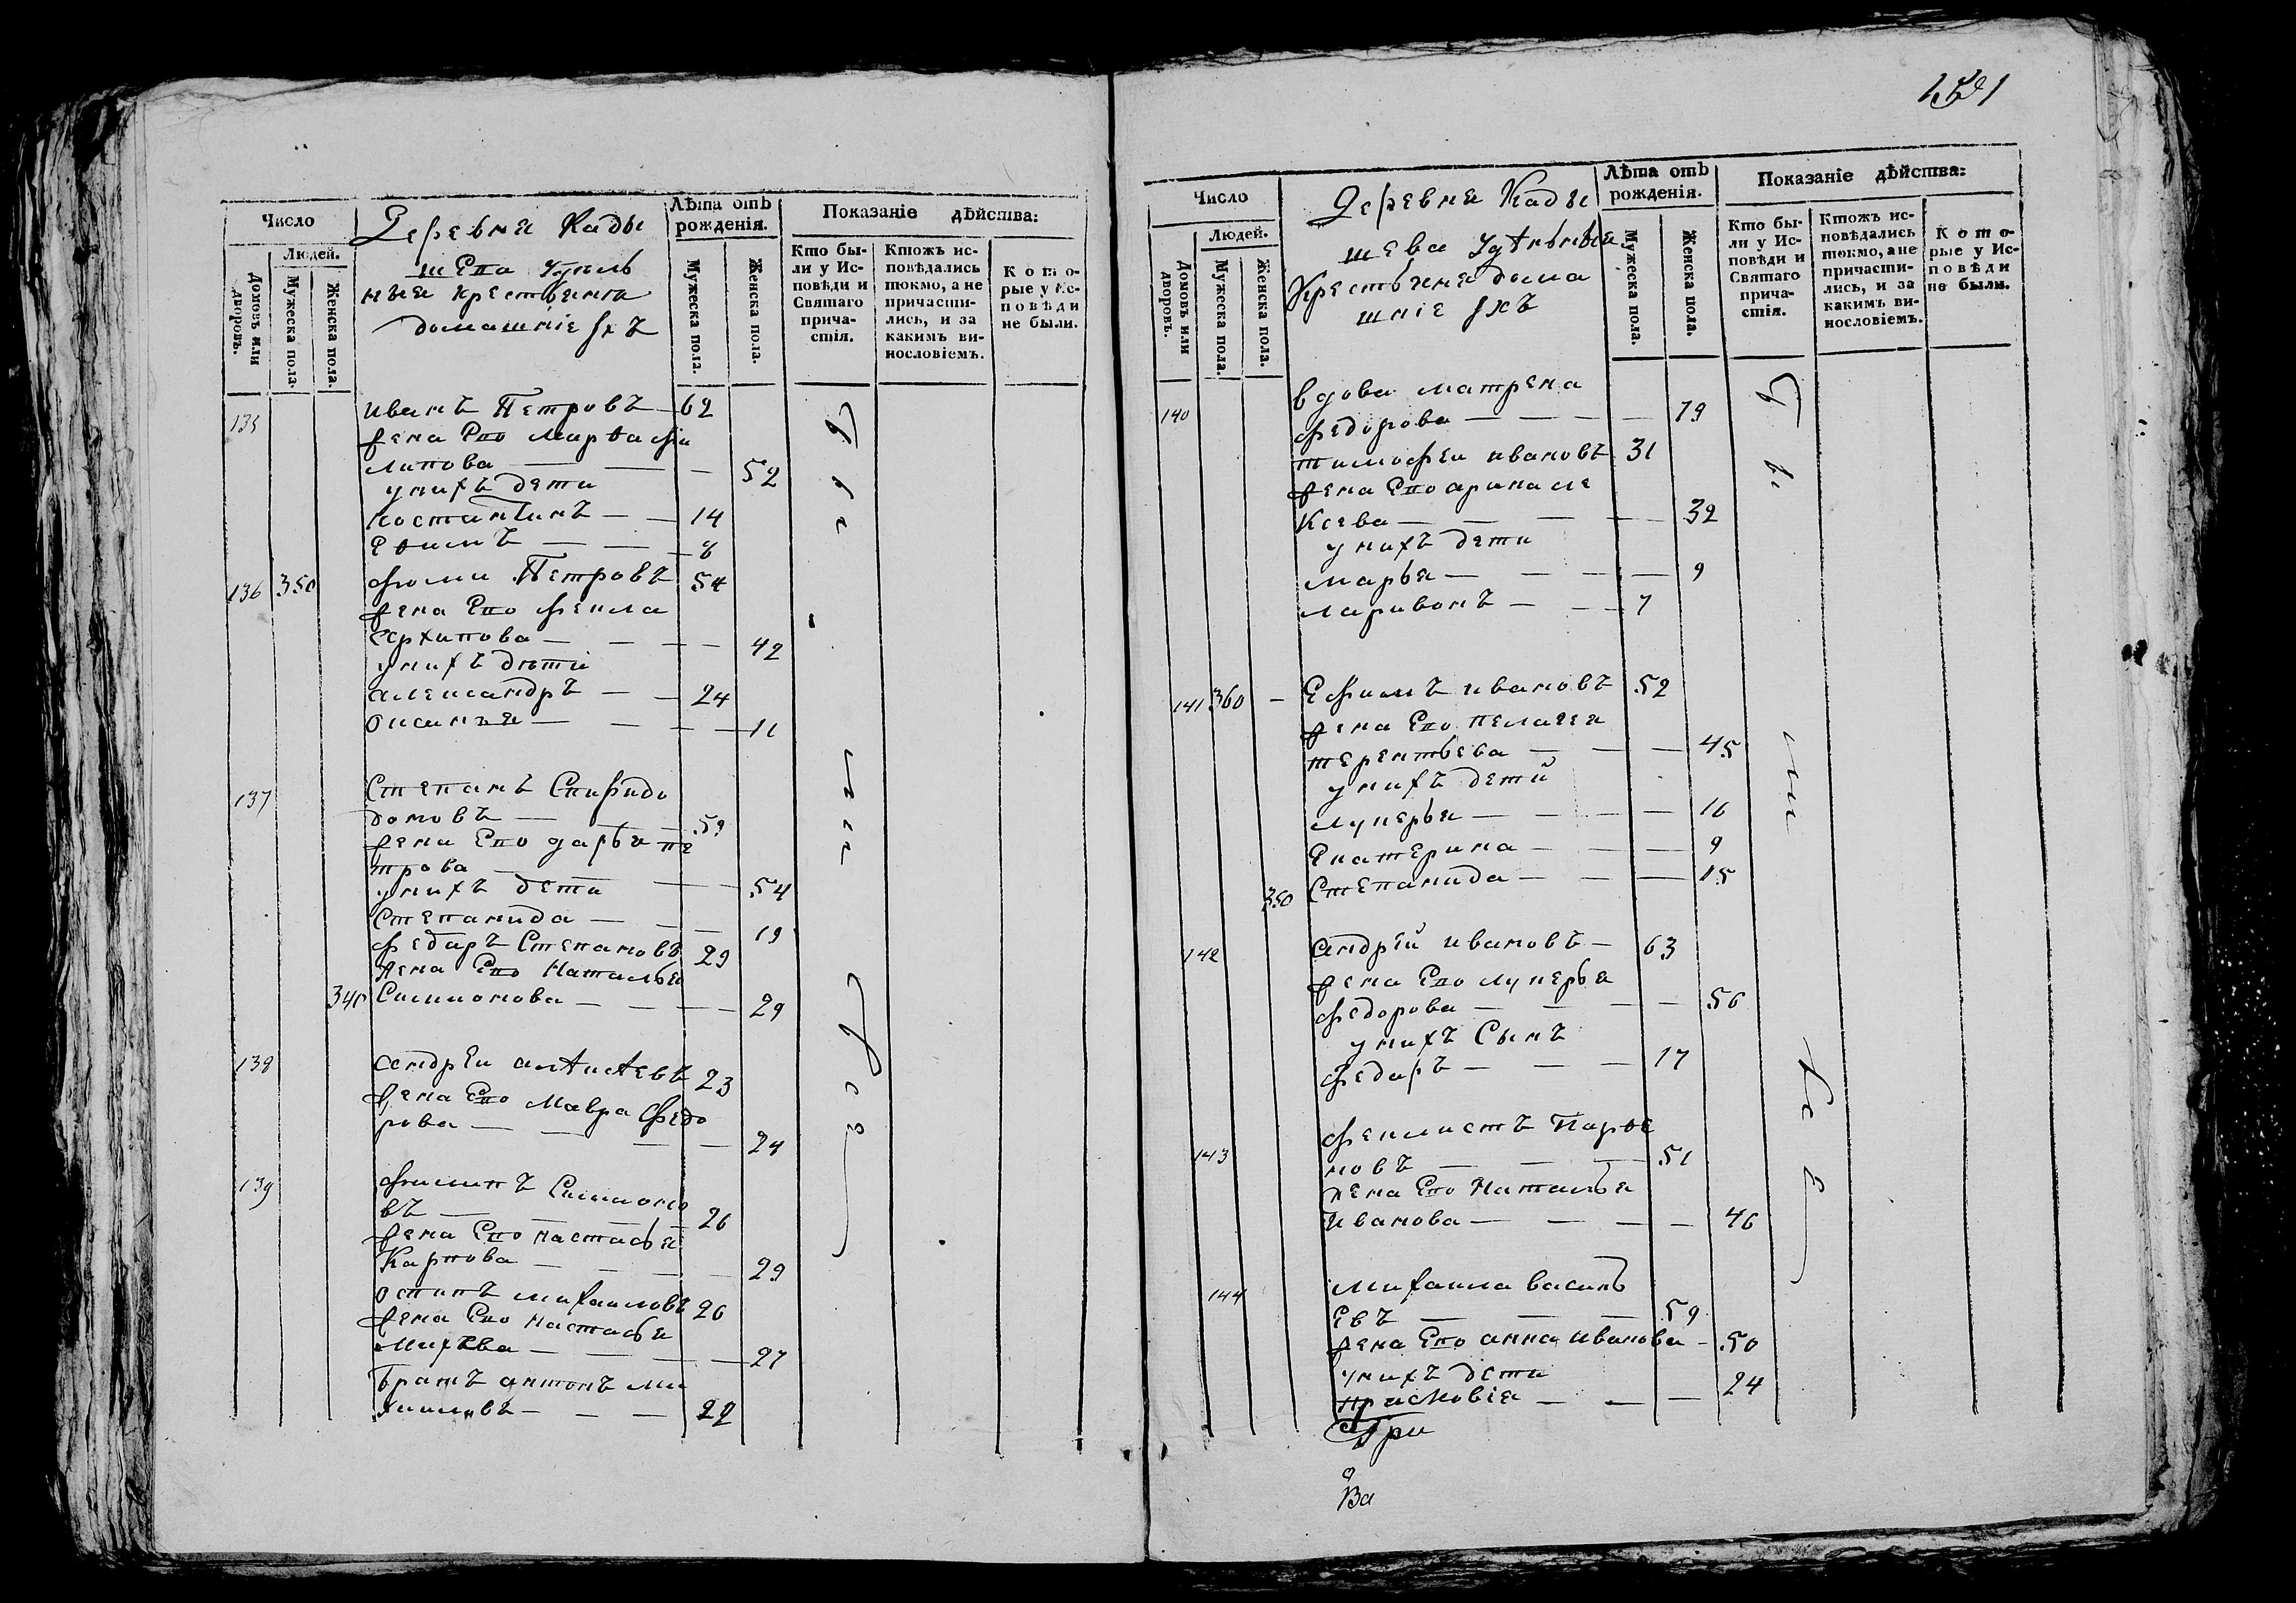 1541
Число
Людей.
Домовъ или дворовъ.
Мужеска пола.
Женска пола.
Деревня Кады
шева Удѣль
ныя крестьяня
домашніе ихъ
Лѣта отъ
рожденія.
Мужеска пола.
Женска пола.
Показаніе дѣйства:
Кто бы-
ли у Ис-
повѣди и
Святаго
прича-
стія.
Ктожъ ис-
повѣдались
токмо, а не
причасти-
лись, и за
какимъ ви-
нословіемъ.
Кото-
рые у Ис-
повѣди
не были.
135 иванъ Петровъ 62
жена Его Марѳа фи
липова — — — 52
у нихъ дети
Костантинъ — — 14
Еѳимъ — — — 8
136 350 фома Петровъ 54
жена Его фекла
Архипова — — — 42
у нихъ дѣти
александръ — — 24
оксинья — — — 11
137 Степанъ Спиридо
доновъ — — 59
жена Его дарья пе
трова — — — 54
у нихъ дети
Степанида — — 19
федаръ Степановъ 29
жена Его Наталья
340 Симионова — — — 29
138 андреи алѣксѣевъ 23
жена Его Мавра Федо
рова — — — 24
139 филипъ Симионо
въ — — — 26
жена Его настасья
Карпова — — — 29
осипъ михаиловъ 26
жена Его настасья
Михѣва — — — 27
братъ антонъ ми
хаиловъ — — — 22
Число
Людей.
Домовъ или дворовъ.
Мужеска пола.
Женска пола.
Деревня Кады
шева Удѣльныя
Крестьяне дома
шніе ихъ
Лѣта отъ
рожденія.
Мужеска пола.
Женска пола.
Показаніе дѣйства:
Кто бы-
ли у Ис-
повѣди и
Святаго
прича-
стія.
Ктожъ ис-
повѣдались
токмо, а не
причасти-
лись, и за
какимъ ви-
нословіемъ.
Кото-
рые у Ис-
повѣди
не были.
140 вдова матрена
федорова — — — 79
тимофеи ивановъ 31
жена Его арина але
Ксева — — — 32
у нихъ дети
марья — — — 9
ларивонъ — — 7
141 360 — Ефимъ ивановъ 52
жена Его пелагея
терентьева — — — 45
у нихъ детй
лукерья — — — 16
Екатерина — — — 9
350 Степанида — — — 15
142 андрей ивановъ — 63
жена Его лукерья
федорова — — — 56
у нихъ Сынъ
федаръ — — — 17
143 феклистъ Парѳе
новъ — — — 51
жена Его Наталья
Иванова — — — 46
144 михаила василь
Евъ — — — 59
жена Его анна иванова — 50
у нихъ дети
прасковія — — — 24